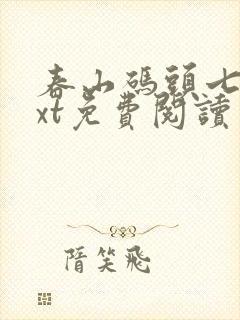 春山碼頭七
xt免費閱讀
隋笑飛